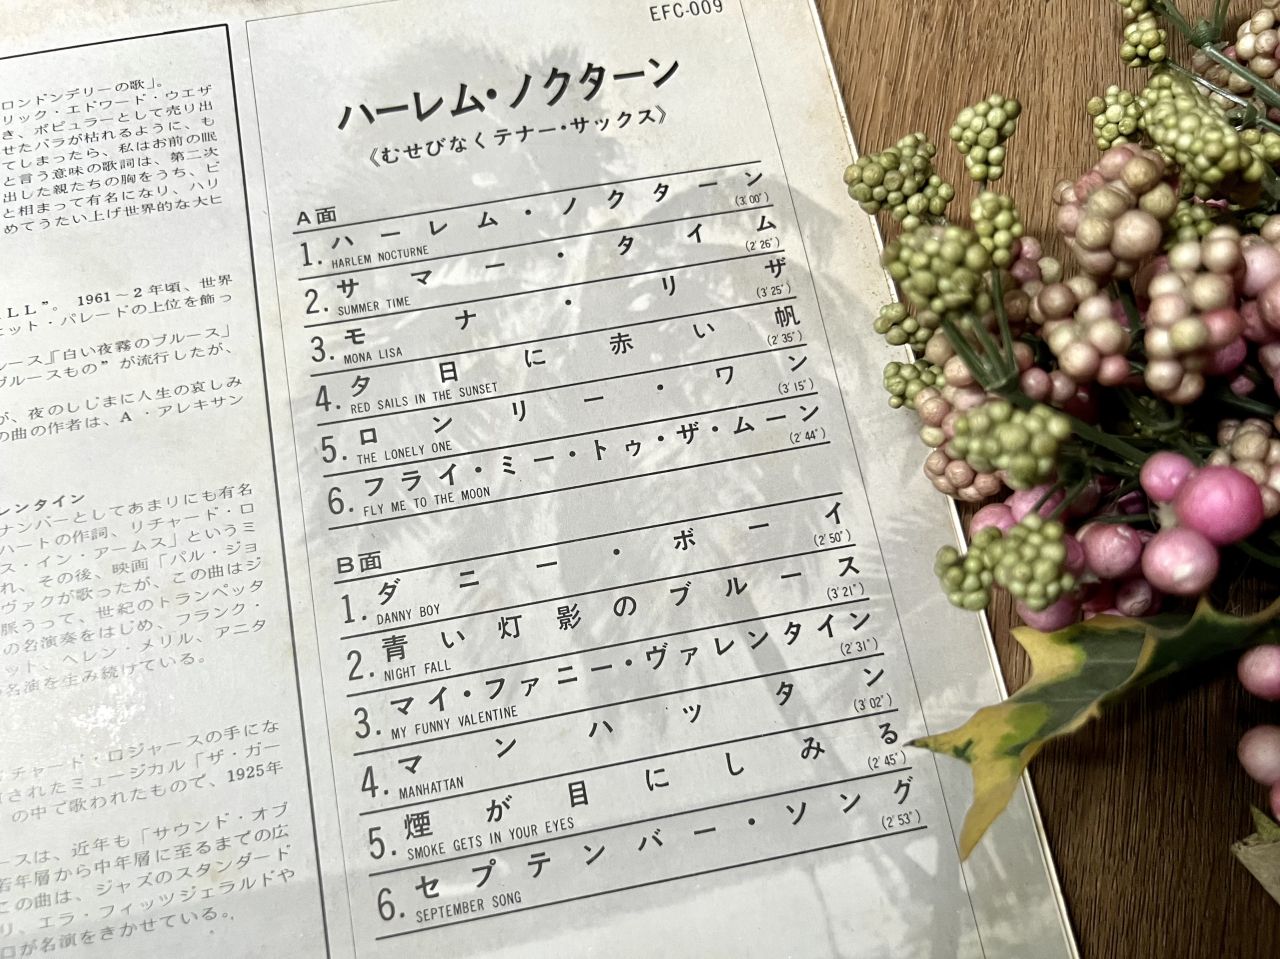 EFC-009
ハーレム・ノクターン
《むせびなくテナー・サックス》
A面
1. ハーレム・ノクターン
HARLEM NOCTURNE (3'00")
2. サマー・タイム
SUMMER TIME (2'26")
3. モナ・リザ
MONA LISA (3'25")
4. 夕日に赤い帆
RED SAILS IN THE SUNSET (2'35")
5. ロンリー・ワン
THE LONELY ONE (3'15")
6. フライ・ミー・トゥ・ザ・ムーン
FLY ME TO THE MOON (2'44")
B面
1. ダニー・ボーイ
DANNY BOY (2'50")
2. 青い灯影のブルース
NIGHT FALL (3'21")
3. マイ・ファニー・ヴァレンタイン
MY FUNNY VALENTINE (2'31")
4. マンハッタン
MANHATTAN (3'02")
5. 煙が目にしみる
SMOKE GETS IN YOUR EYES (2'45")
6. セプテンバー・ソング
SEPTEMBER SONG (2'53")
ロンドンデリーの歌」。
リック・エドワード・ウエザ
き、ポピュラーとして売り出
せたバラが枯れるように、も
てしまったら、私はお前の眠
と言う意味の歌詞は、第二次
出した親たちの胸をうち、ビ
と相まって有名になり、ハリ
めてうたい上げ世界的な大ヒ
ALL”。 1961～2年頃、世界
ヒット・パレードの上位を飾っ
ース『白い夜霧のブルース」
ブルースもの”が流行したが、
が、夜のしじまに人生の哀しみ
の曲の作者は、A・アレキサン
レンタイン
ナンバーとしてあまりにも有名
ハートの作詞、リチャード・ロ
ス・イン・アームス」というミ
れ、その後、映画「パル・ジョ
ヴァクが歌ったが、この曲はジ
脈うって、世紀のトランペッタ
の名演奏をはじめ、フランク・
ット、ヘレン・メリル、アニタ
名演を生み続けている。
チャード・ロジャースの手にな
されたミュージカル「ザ・ガー
の中で歌われたもので、1925年
ースは、近年も「サウンド・オブ
若年層から中年層に至るまでの広
この曲は、ジャズのスタンダード
り、エラ・フィッツジェラルドや
ロが名演をきかせている。